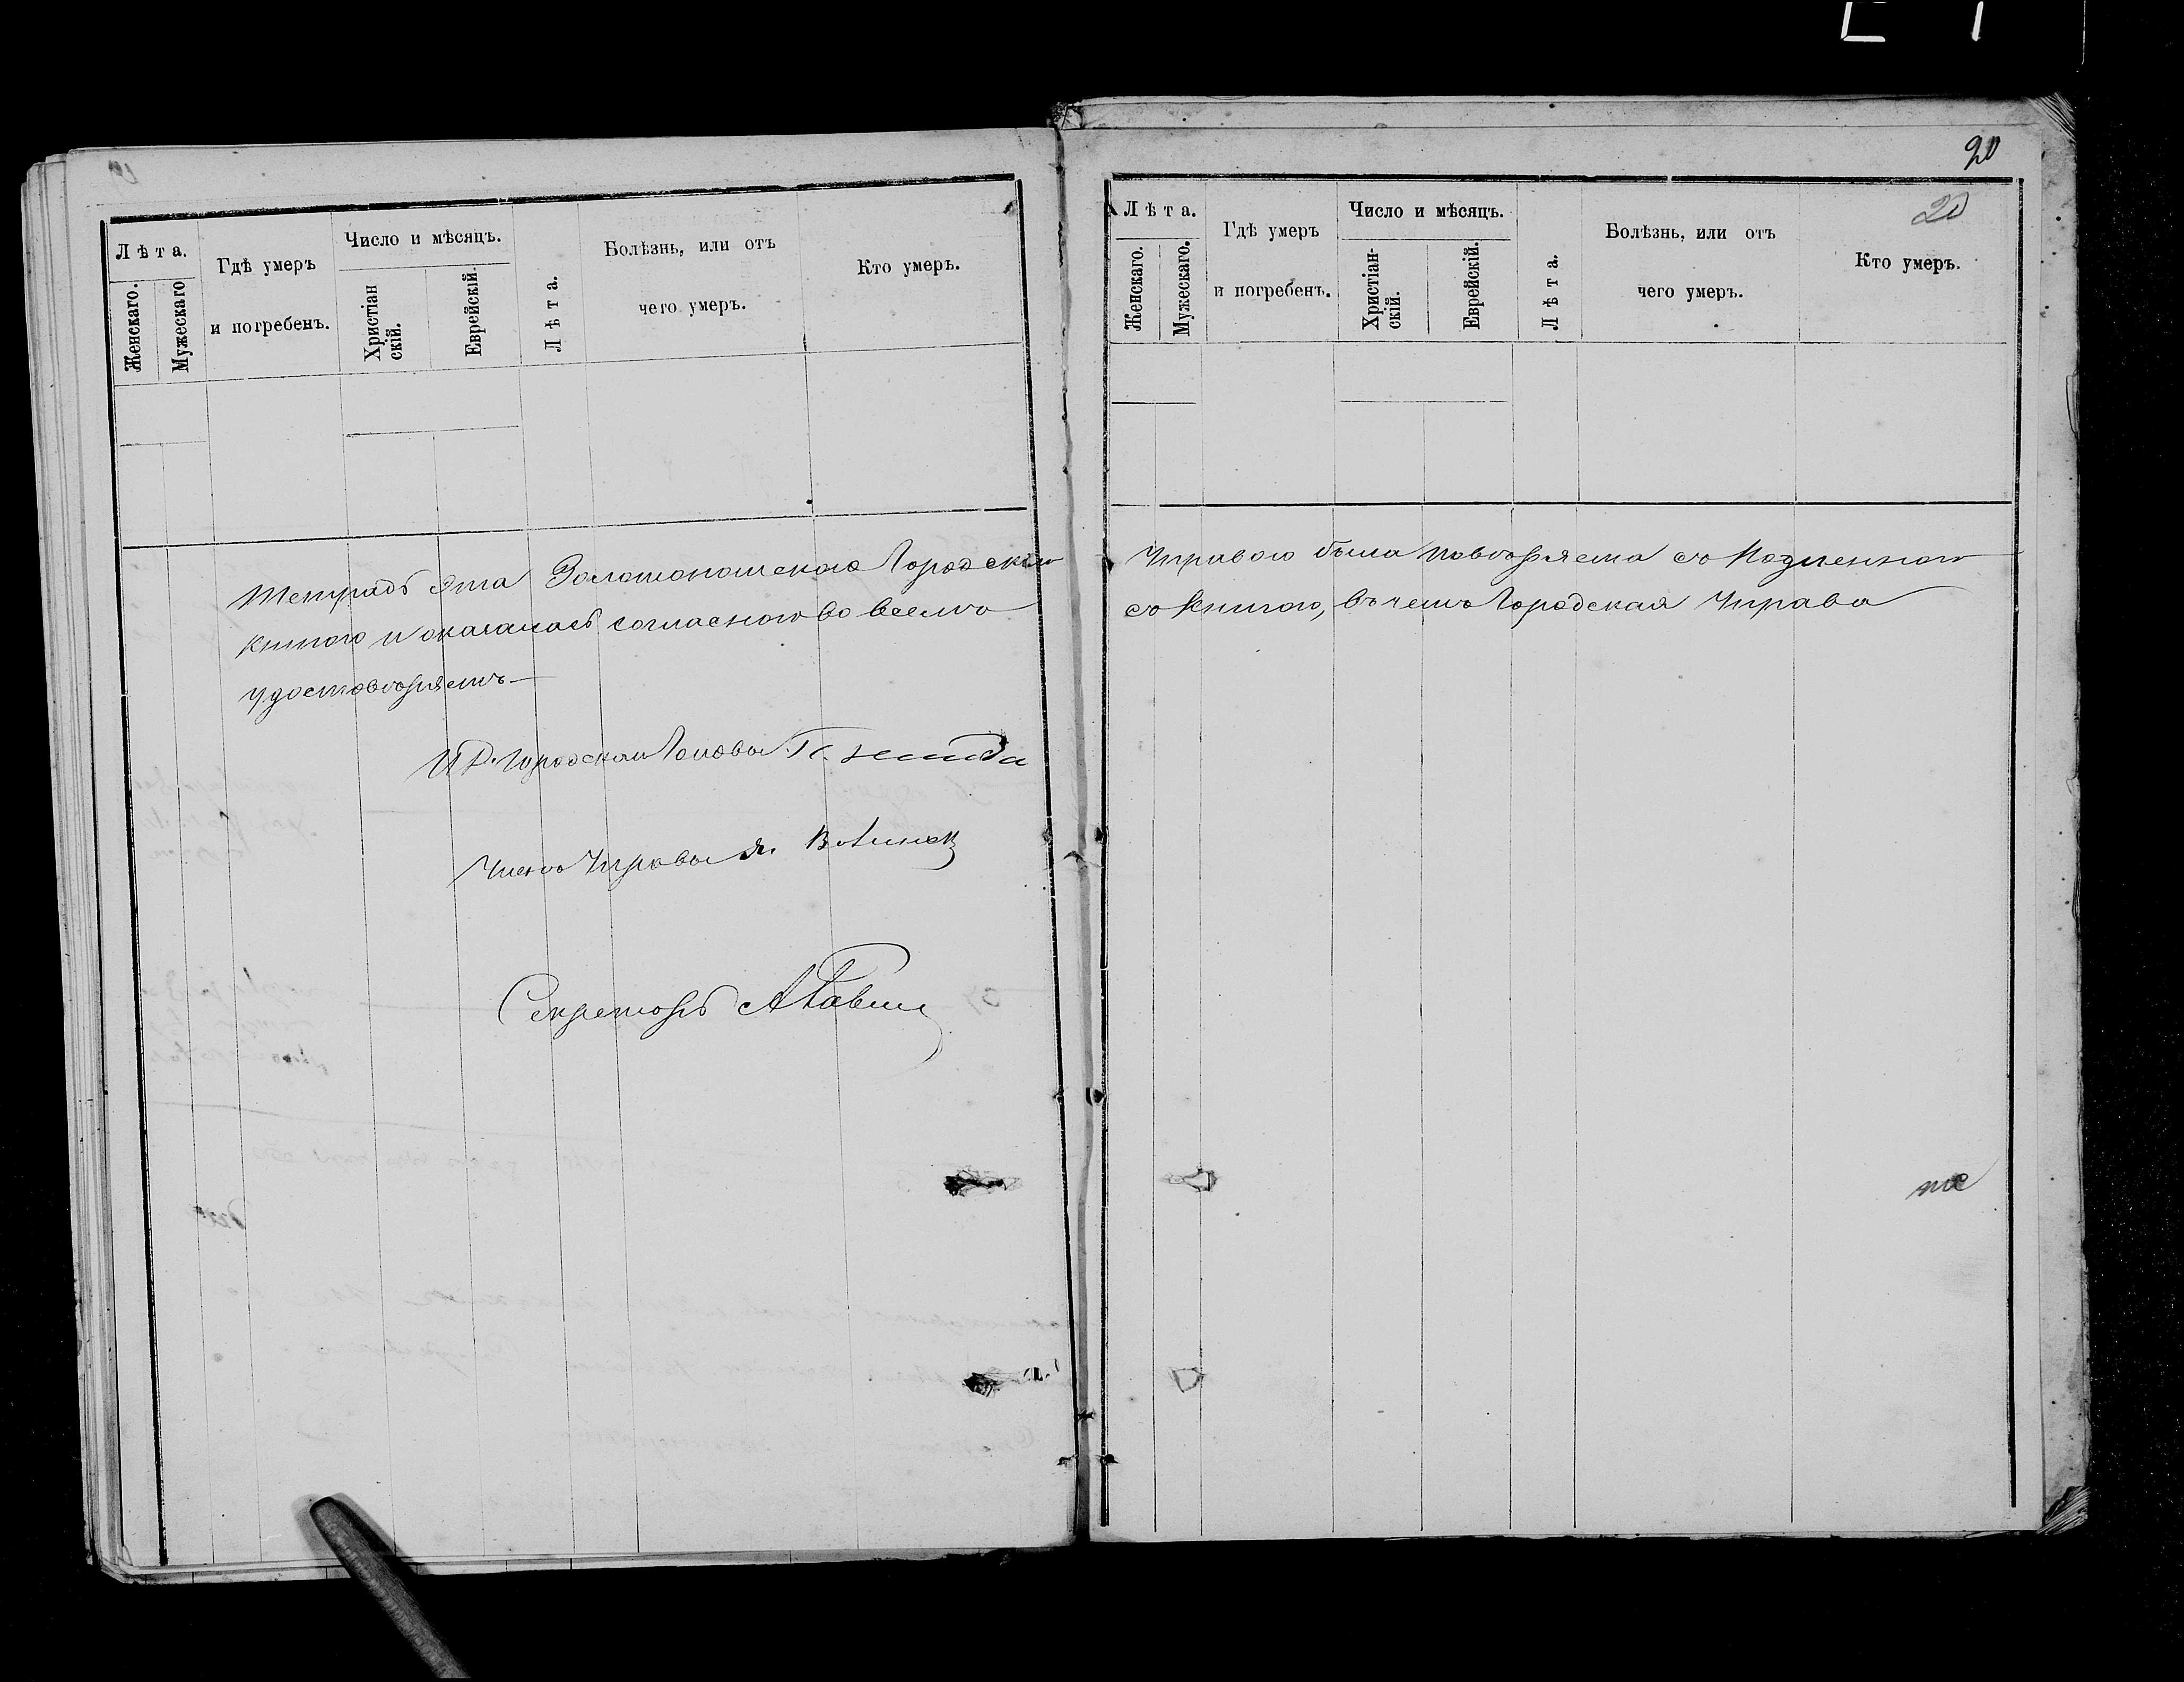 Лѣта.
Женскаго.
Мужескаго
Гдѣ умеръ
и погребенъ.
Число и мѣсяцъ.
Христіан
скій.
Еврейскій.
Лѣта.
Болѣзнь, или отъ
чего умеръ.
Кто умеръ.
Тетрадь эта Золотоношскою Городскою
книгою и оказалась согласною во всемъ
удостовѣряетъ
И. Д. Городскаго Головы
Членъ Управы
Секретарь
20
20
Лѣта.
Женскаго.
Мужескаго.
Гдѣ умеръ
и погребенъ.
Число и мѣсяцъ.
Христіан-
скій.
Еврейскій.
Лѣта.
Болѣзнь, или отъ
чего умеръ.
Кто умеръ.
Управою была повѣряема съ подленною
книгою, въ чемъ Городская Управа